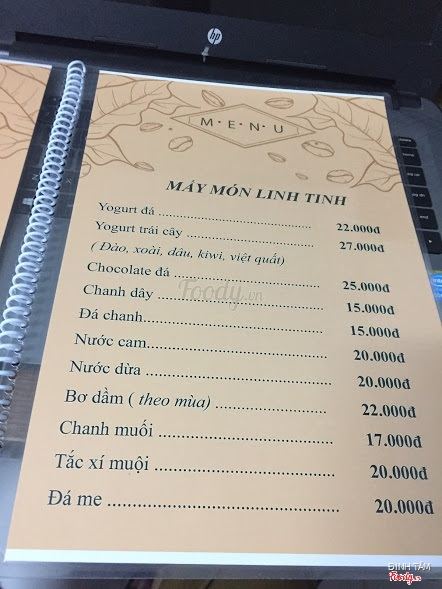 hp
M·E·N·U
MẤY MÓN LINH TINH
Yogurt đá ........................................ 22.000đ
Yogurt trái cây ................................. 27.000đ
( Đào, xoài, dâu, kiwi, việt quất)
Chocolate đá .................................... 25.000đ
Foody.vn
Chanh dây ........................................ 15.000đ
Đá chanh........................................... 15.000đ
Nước cam.......................................... 20.000đ
Nước dừa .......................................... 20.000đ
Bơ dầm ( theo mùa) ......................... 22.000đ
Chanh muối ...................................... 17.000đ
Tắc xí muội ...................................... 20.000đ
Đá me ............................................... 20.000đ
ĐINH TÂM
Foody.vn